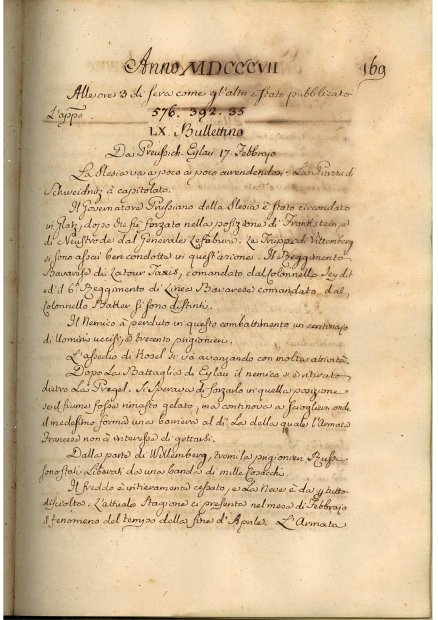 Anno MDCCCVII
169
Alle ore 3 di sera come gl'altri è stato pubblicato
576. 392. 35
LX. Bullettino
Da Preussich-Eylau 17 Febbrajo
La Slesia va a poco a poco arrendendosi. La Piazza di
Schweidnitz à capitolato.
Il Governatore Prussiano della Slesia è stato circondato
in Glatz, dopo che fù forzato nella posizione di Frankstein, e
di Neustrode dal Generale Lefebure. Le Truppe di Vittemberg
si sono assai ben condotte in quest'azione. Il Reggimento
Bavarese di Latour Taxis, comandato dal Colonnello Seydit
ed il 6º Reggimento di Linea Bavarese comandato dal
Colonnello Baker si sono distinti.
Il Nemico à perduto in questo combattimento un centinajo
di Uomini uccisi, e trecento prigionieri.
L'assedio di Kosel si va avanzando con molta attività.
Dopo La Battaglia di Eylau il nemico si è ritirato
dietro La Pregel. Si sperava di forzarlo in quella posizione
se il fiume fosse rimasto gelato, ma continova a sciogliersi, onde
il medesimo forma una barriera al di La della quale l'Armata
Francese non à interesse di gettarsi.
Dalla parte di Willemberg, tremila prigionieri Russi
sono stati Liberati da una banda di mille Cosacchi.
Il freddo è intieramente cessato, e La Neve è da p. tutto
disciolta. L'attuale Stagione ci presenta nel mese di Febbrajo
il fenomeno del tempo della fine d'Aprile. L'Armata